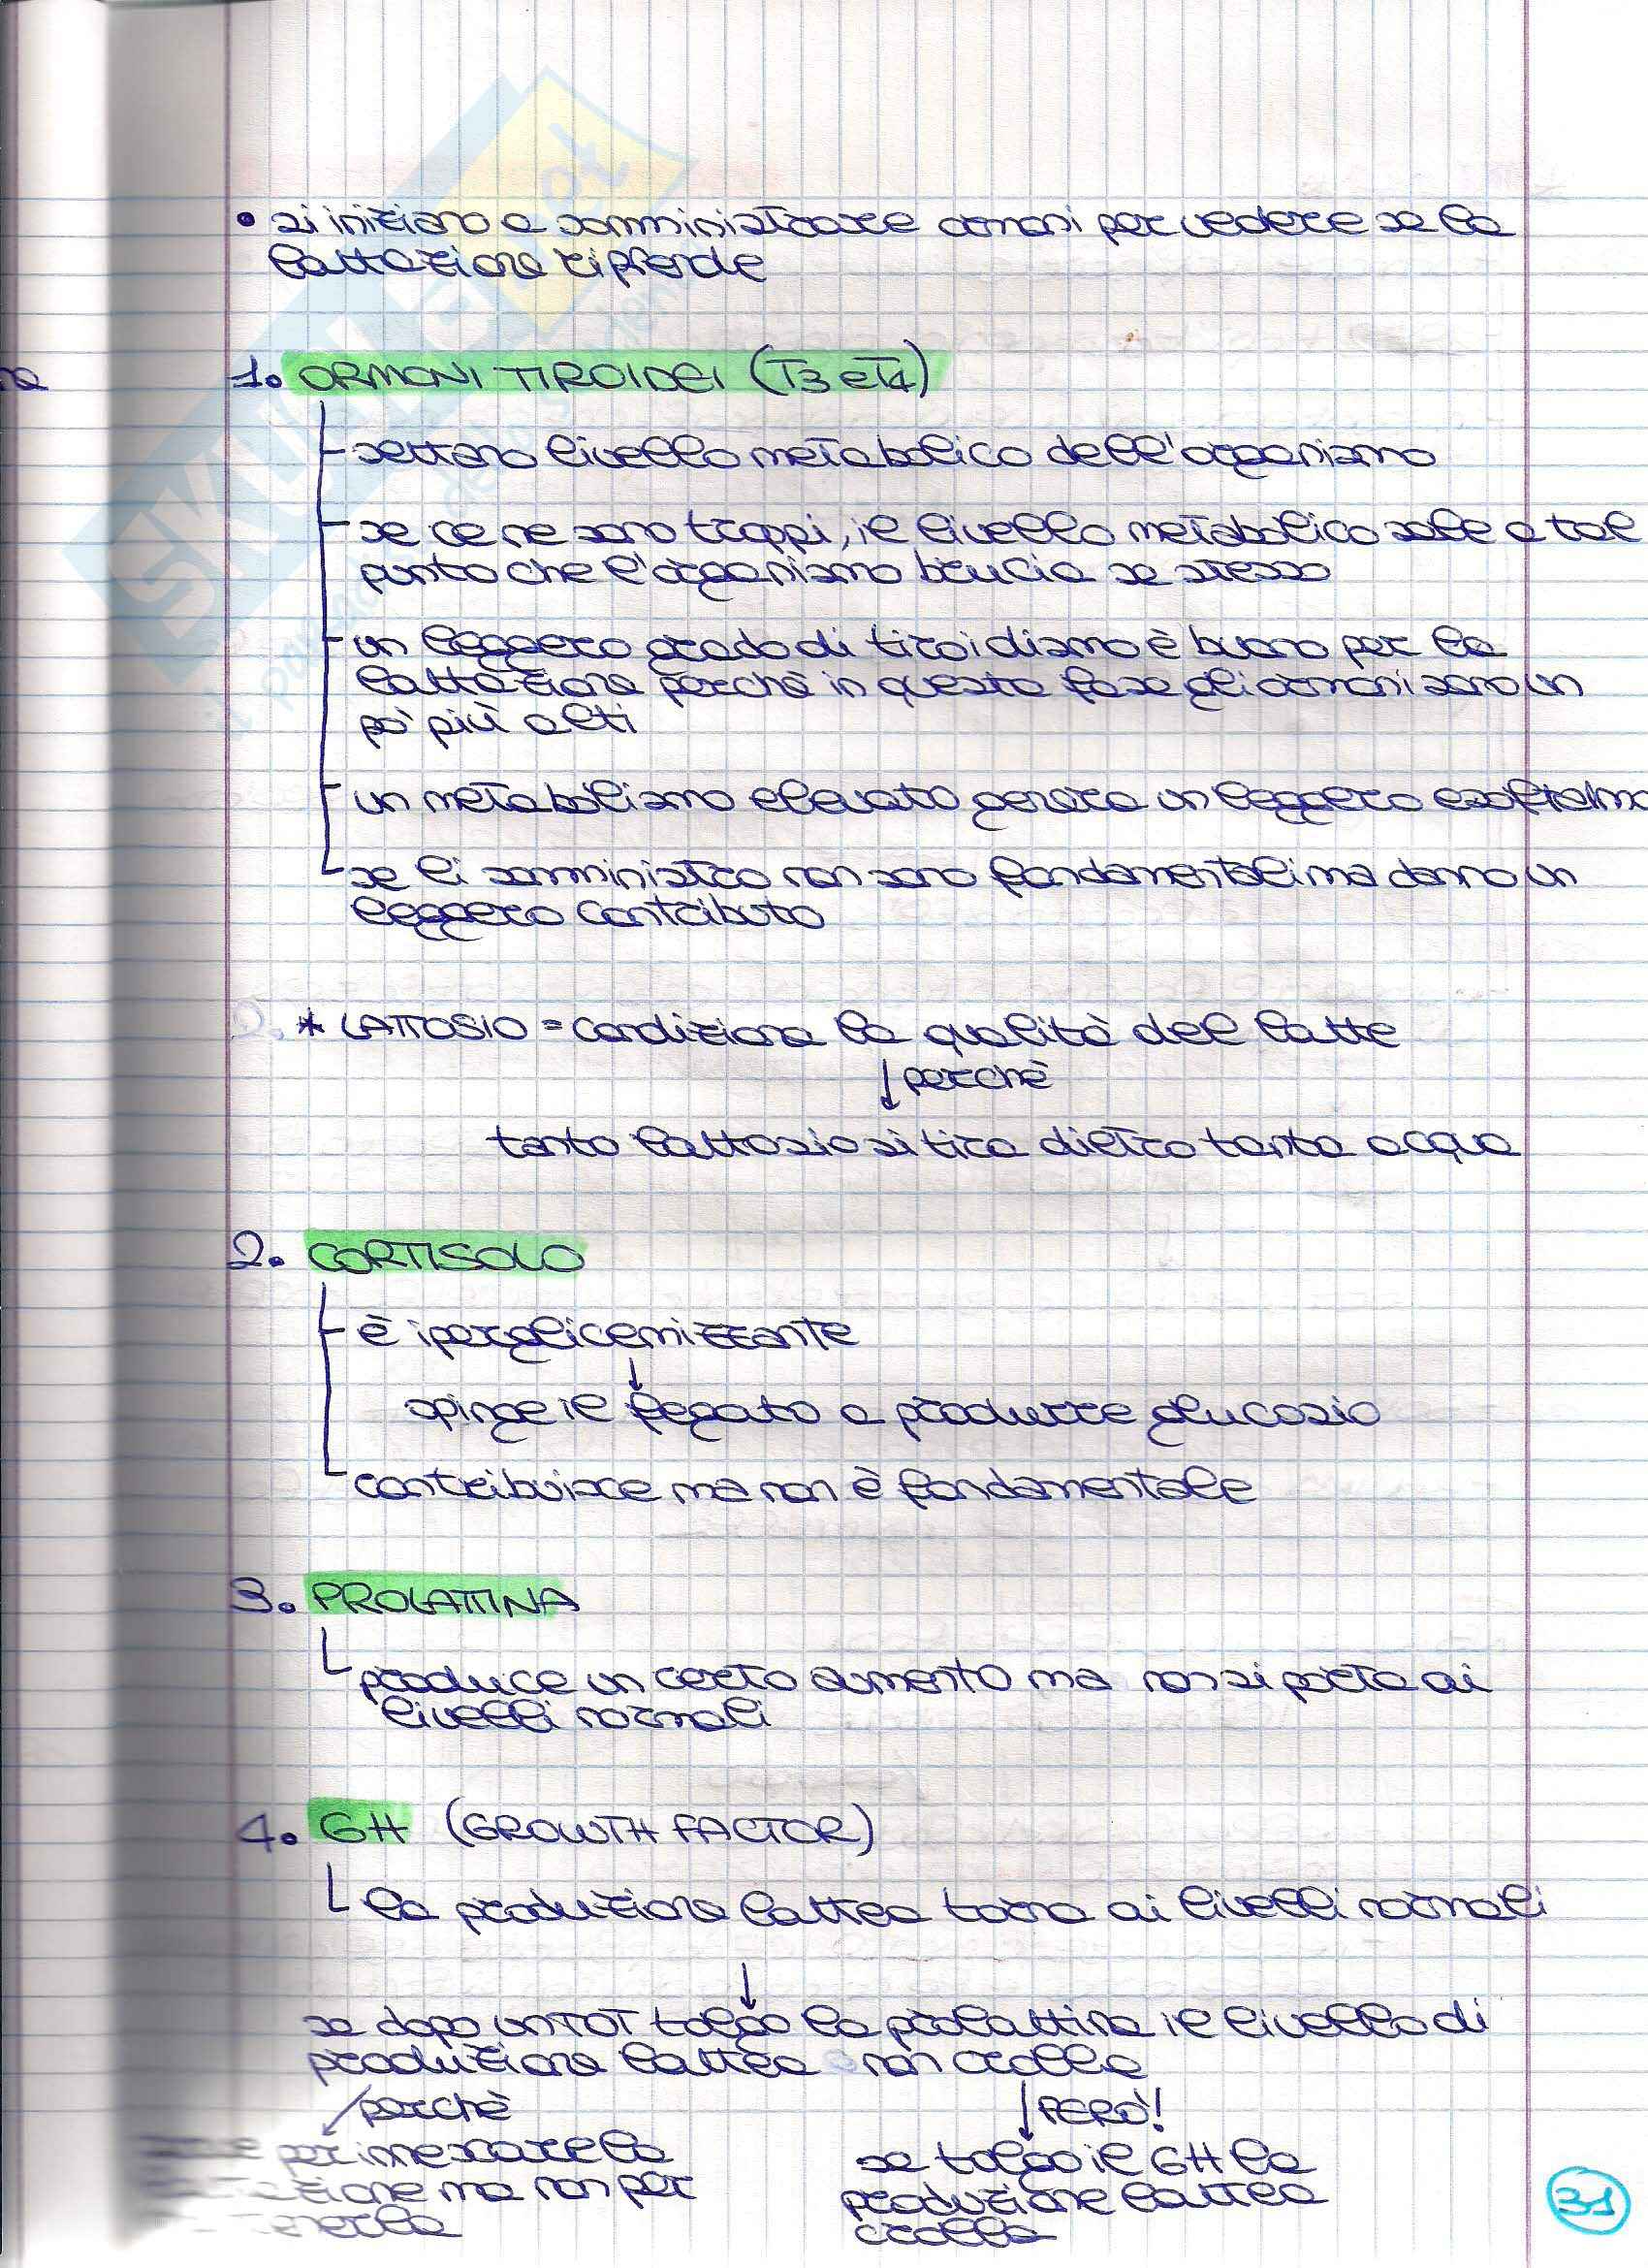 • si iniziano a somministrare ormoni per vedere se la
lattazione riprende
1. ORMONI TIROIDEI (T3 e T4)
settano livello metabolico dell'organismo
se ce ne sono troppi, il livello metabolico sale a tal
punto che l'organismo brucia se stesso
un leggero grado di tiroidismo è buono per la
lattazione perchè in questa fase gli ormoni sono un
pò più alti
un metabolismo elevato genera un leggero esoftalmo
se li somministro non sono fondamentali ma danno un
leggero contributo
* LATTOSIO = condiziona la qualità del latte
↓ perchè
tanto lattosio si tira dietro tanta acqua
2. CORTISOLO
è iperglicemizzante
↓
spinge il fegato a produrre glucosio
contribuisce ma non è fondamentale
3. PROLATTINA
produce un certo aumento ma non si porta ai
livelli normali
4. GH (GROWTH FACTOR)
la produzione lattea torna ai livelli normali
↓
se dopo un TOT tolgo la prolattina il livello di
produzione lattea non crolla
perchè
↓ PERÒ!
per innescare la
se tolgo il GH la
ma non per
produzione lattea
crolla
31
SKUOLA.net